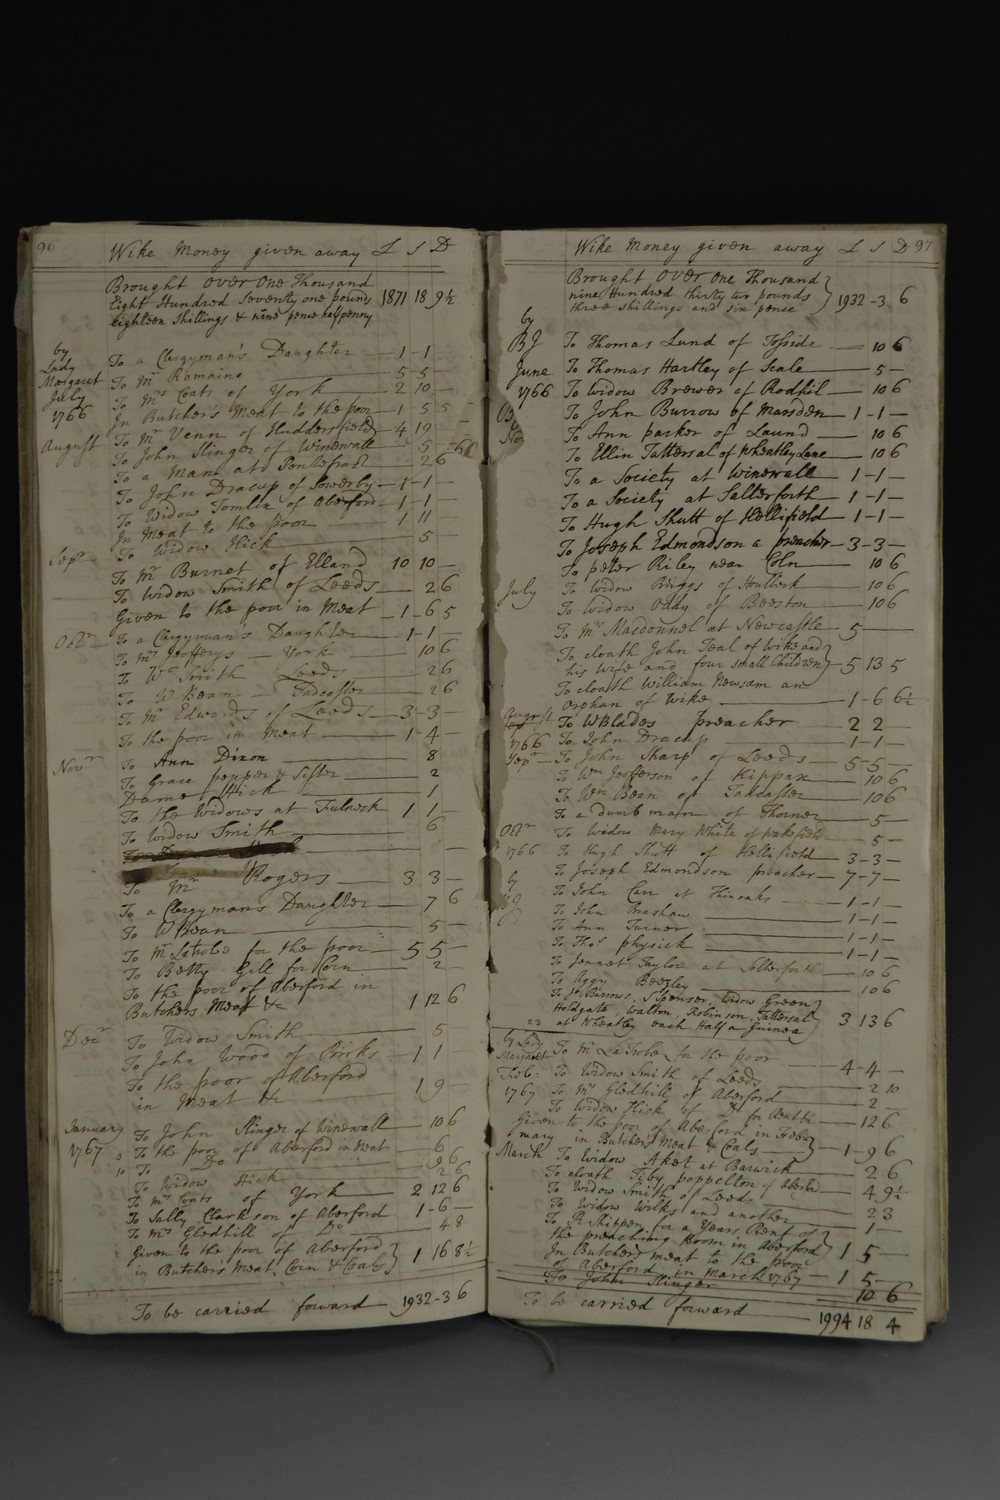 96
Wike Money given away £ S D
Brought over One Thousand
Eight Hundred Seventy one pounds 1871 18 9½
eighteen Shillings & nine pence halfpenny
by
Lady To a Clergyman's Daughter — 1 - 1 —
Margaret To Mr Romaine 5 5 —
July To Mrs Coats of York — 2 10 —
1766 In Butcher's Meat to the poor — 1 5 5
August To Mr Venn of Huddersfield — 4 19 —
To John Slinger of Winewall — 5 —
To a Man at Pontefract 2 6
To John Dracup of Sowerby — 1 - 1 —
To Widow Tomlin of Aberford — 1 - 1 —
In Meat to the poor — 1 11 —
Sepr To Widow Hick — 5 —
To Mr Burnet of Elland 10 10 —
To Widow Smith of Leeds — 2 6
Given to the poor in Meat — 1 - 6 5
Octr To a Clergyman's Daughter — 1 - 1 —
To Mr Jefferys — York — 10 6
To W Smith Leeds 2 6
To W Bean — Tadcaster — 2 6
To Mr Edwards of Leeds — 3 - 3 —
To the poor in Meat — 1 - 4 —
Novr To Ann Dixon — 8
To Grace pepper & Sister — 2
Dame Hick — 1
To the Widows at Fulneck 1 1 —
To Widow Smith — 6
To Mr Rogers — 3 3 —
To a Clergyman's Daughter — 7 6
To W Bean — 5 —
To Mr Latrobe for the poor — 5 5 —
To Betty Gill for Corn — 2 —
To the poor of Aberford in
Butchers Meat &c 1 12 6
Decr To Widow Smith — 5
To John Wood of Birks — 1 1
To the poor of Aberford
in Meat &c — 1 9 —
January To John Slinger of Winewall — 10 6
1767 To the poor of Aberford in Meat — 6
To Do — 9 6
To Widow Hick — 2 6
To Mrs Coats of York — 2 12 6
To Sally Clarkson of Aberford 1 - 6 —
To Mrs Gledhill of Do — 4 8
Given to the poor of Aberford
in Butcher's Meat, Corn & Coals 1 16 8½
To be carried forward — 1932 - 3 6
Wike Money given away £ S D 97
Brought over One Thousand
nine Hundred thirty two pounds 1932 - 3 6
three shillings and six pence
by
BJ To Thomas Lund of Tosside — 10 6
June To Thomas Hartley of Scale — 5 —
1766 To Widow Brewer of Rodhil — 10 6
To John Burrow of Marsden — 1 - 1 —
To Ann parker of Laund — 10 6
To Ellin Tattersal of Wheatley Lane — 10 6
To a Society at Winewall — 1 - 1 —
To a Society at Salterforth — 1 - 1 —
To Hugh Shutt of Hellifield — 1 - 1 —
To Joseph Edmondson a preacher — 3 - 3 —
To peter Riley near Coln — 10 6
July To Widow Briggs of — 10 6
To Widow Oddy of Beeston — 10 6
To Mrs Macdonnel at Newcastle — 5 —
To cloath John Teal of Wike and
his Wife and four small Children 5 13 5
To cloath William Newsam an
orphan of Wike — 1 - 6 6½
August To W Blades preacher — 2 2 —
1766 To John Dracup — 1 - 1 —
Sepr To John Sharp of Leeds — 5 - 5 —
To Wm Jefferson of Kippax — 10 6
To Wm Bean of Tadcaster — 10 6
To a dumb man of Thorner — 5 —
Octr To Widow Mary White of Wakefield — 5 —
1766 To Hugh Shutt of Hellifield — 3 - 3 —
by To Joseph Edmondson preacher — 7 - 7 —
To John Carr at Thinoaks — 1 - 1 —
To John Crashaw — 1 - 1 —
To Ann Turner — 1 - 1 —
To Thos physick — 1 - 1 —
To Jennet Taylor at Salterforth — 10 6
To Aggy Beezley — 10 6
To Jn Burrows, S Spenser, Widow Green
Holdgate, Walton, Robinson, Tattersal 3 13 6
at Wheatley each Half a Guinea
by Lady
Margaret To Mr La Trobe for the poor — 4 - 4 —
Feb: To Widow Smith of Leeds — 2 10
1767 To Mrs Gledhill of Aberford — 2 —
To Widow Hick of Do for — 12 6
Given to the poor of Aberford in Febru
mary in Butchers Meat & Coals — 1 - 9 6
March To Widow Aket at Barwick — 2 6
To cloath Tiby poppelton of Aberford — 4 9½
To Widow Smith of Leeds — 2 3
To Widow Wilks and another — 1 —
To R Shippen for a Years Rent of
the preaching Room in Aberford 1 5 —
In Butchers meat to the poor
of Aberford in March 1767 — 1 5 —
To John Slinger — 10 6
To be carried forward — 1994 18 4